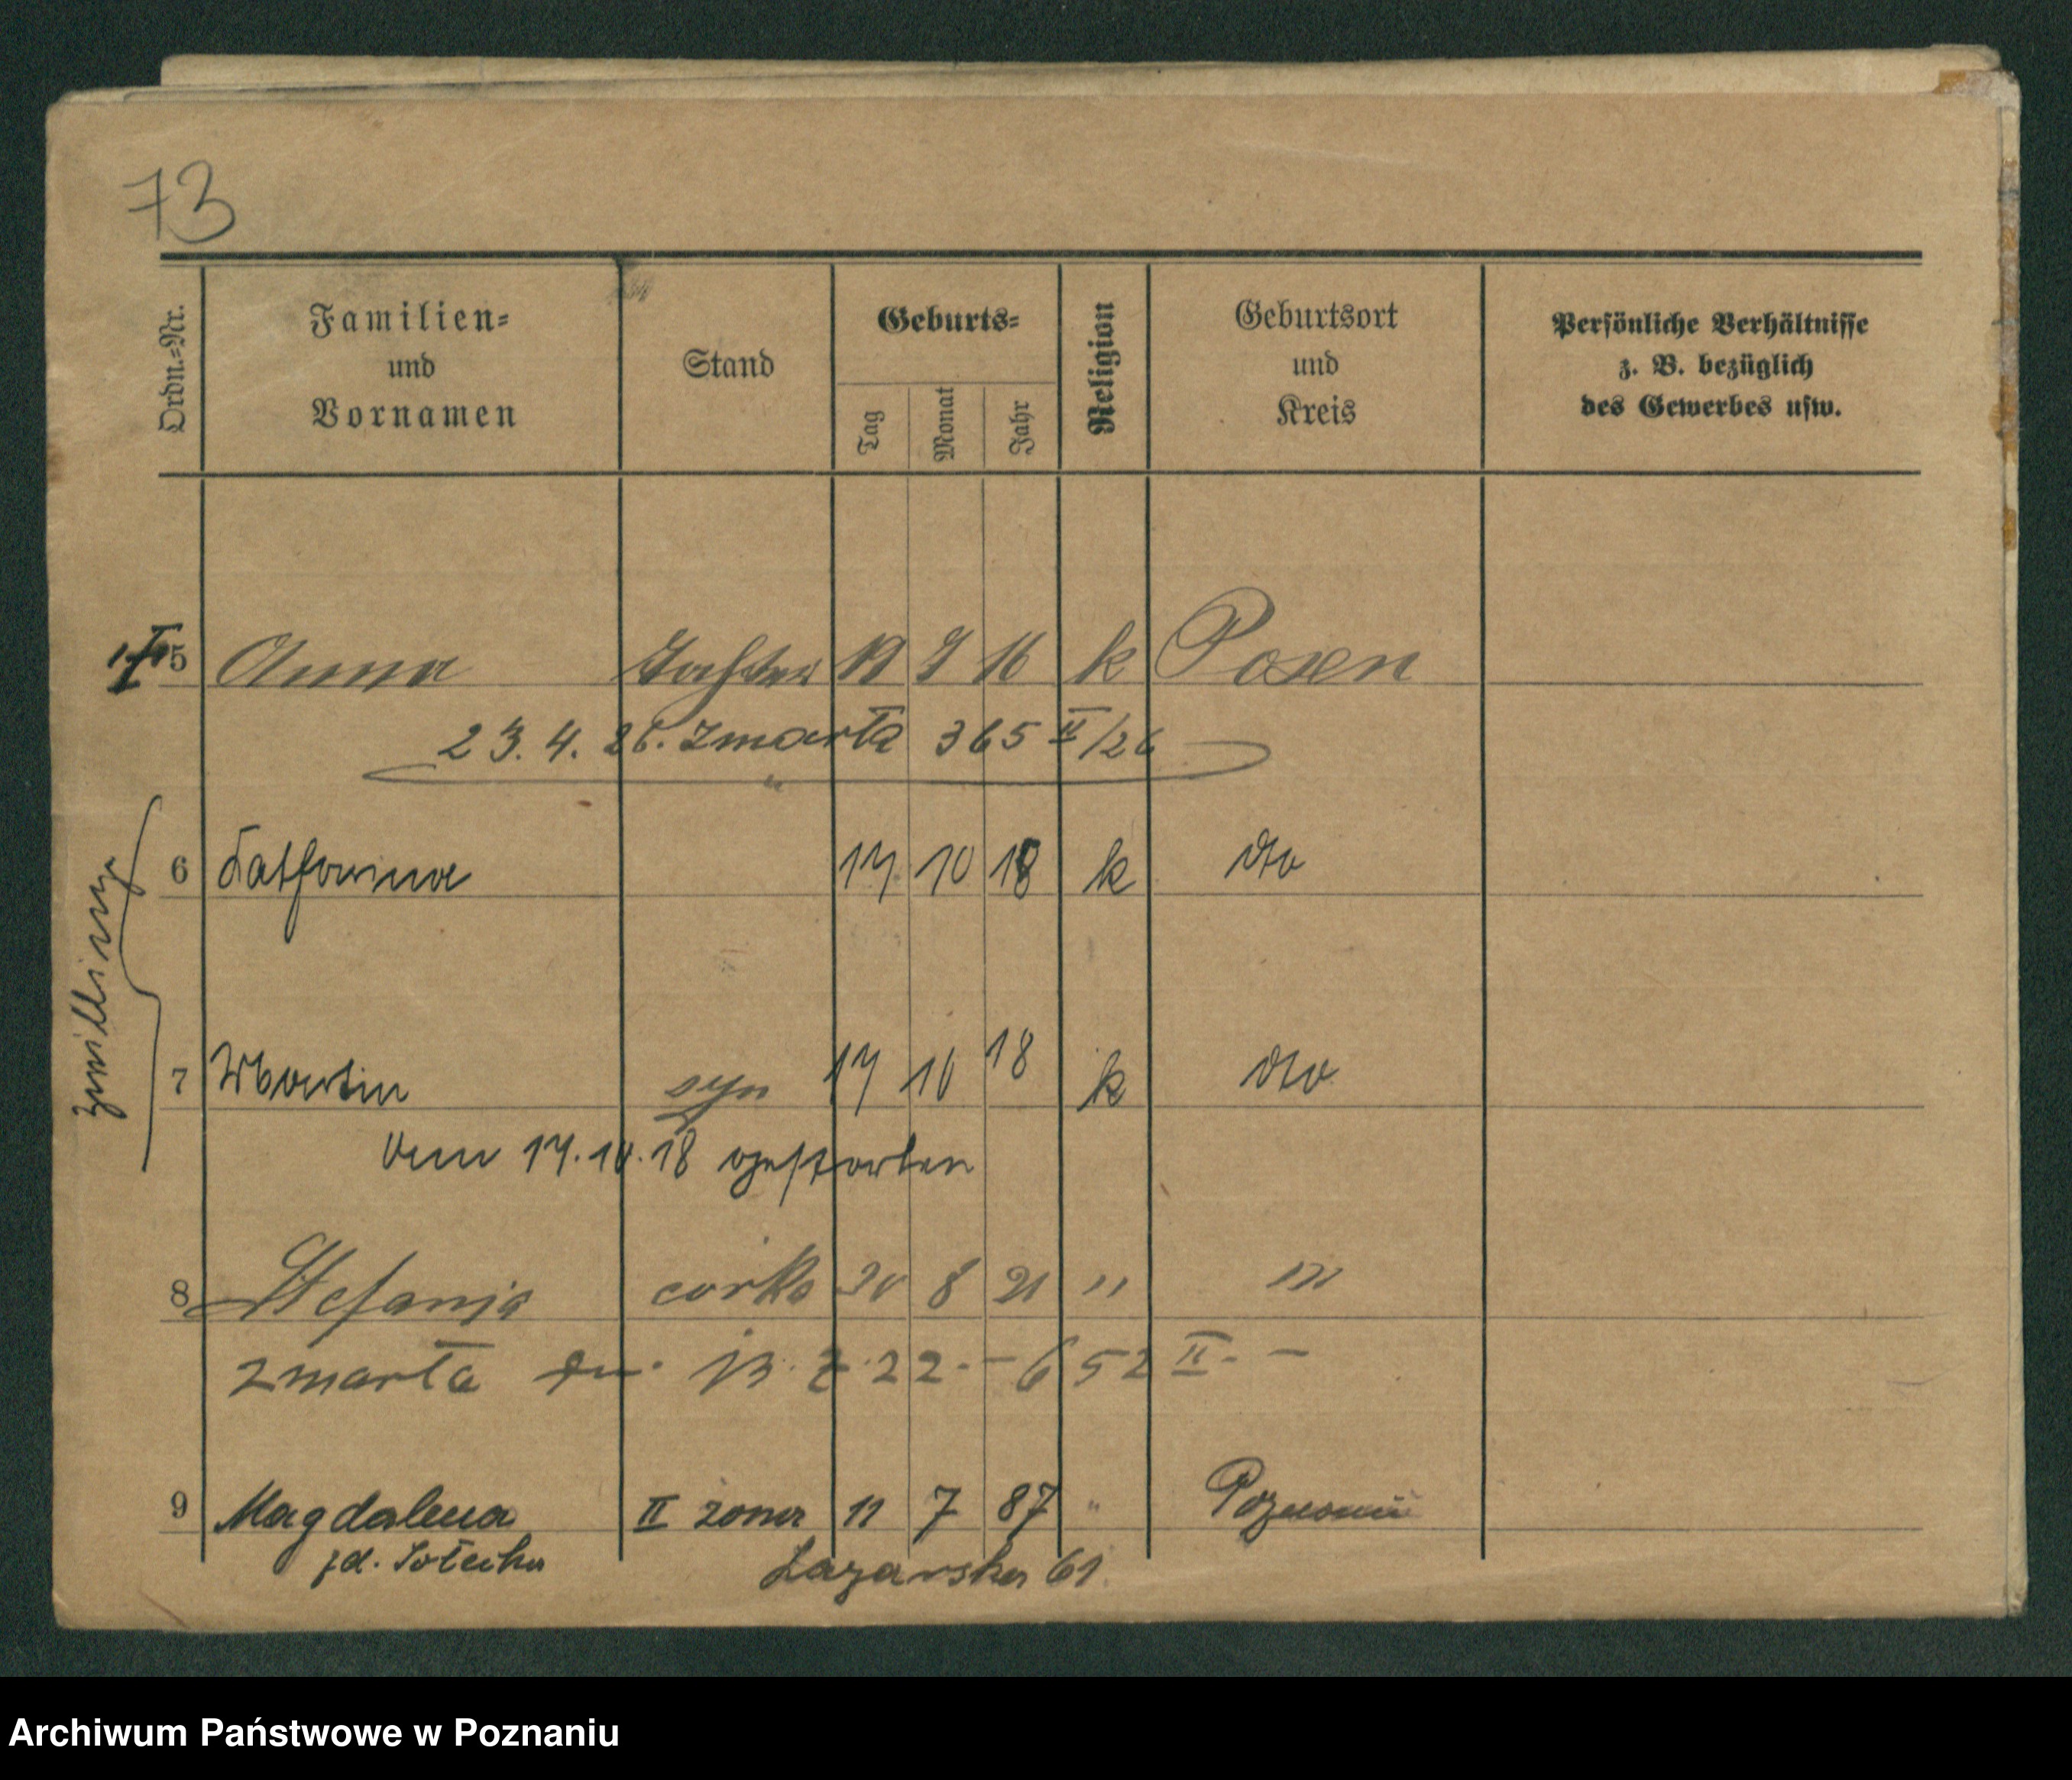 73
Ordn.=Nr.
Familien=
und
Vornamen
Stand
Geburts=
Tag
Monat
Jahr
Religion
Geburtsort
und
Kreis
Persönliche Verhältnisse
z. B. bezüglich
des Gewerbes usw.
5 Anna Tochter 19 7 16 k Posen
23. 4. 26. zmarła 365 II/26
Zwilling
6 Katharina 17 10 18 k dto
7 Martin syn 17 10 18 k dto
17.10.18 gestorben
8 Stefanja córka 30 8 21 " "
zmarła dn. 13. 2. 22. — 652 II. —
9 Magdalena II żona 11 7 87 " Poznań
Łazarska 61.
Archiwum Państwowe w Poznaniu